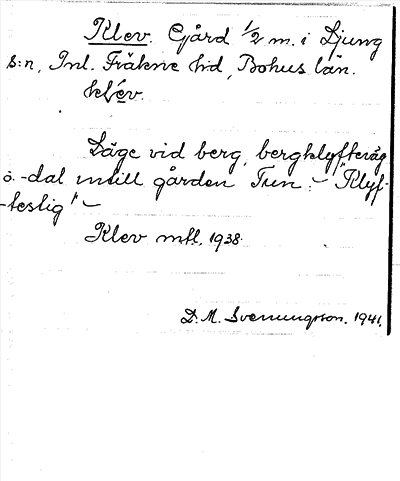 Klev. Gård 1/2 m. i Ljung
s:n, Inl. Fräkne hd, Bohus län.
klev.
Läge vid berg, bergklyfteväg
o. -dal intill gården Tun. - "Klyf-
-testig" -
Klev mtl. 1938.
D. M. Svenungsson. 1941.